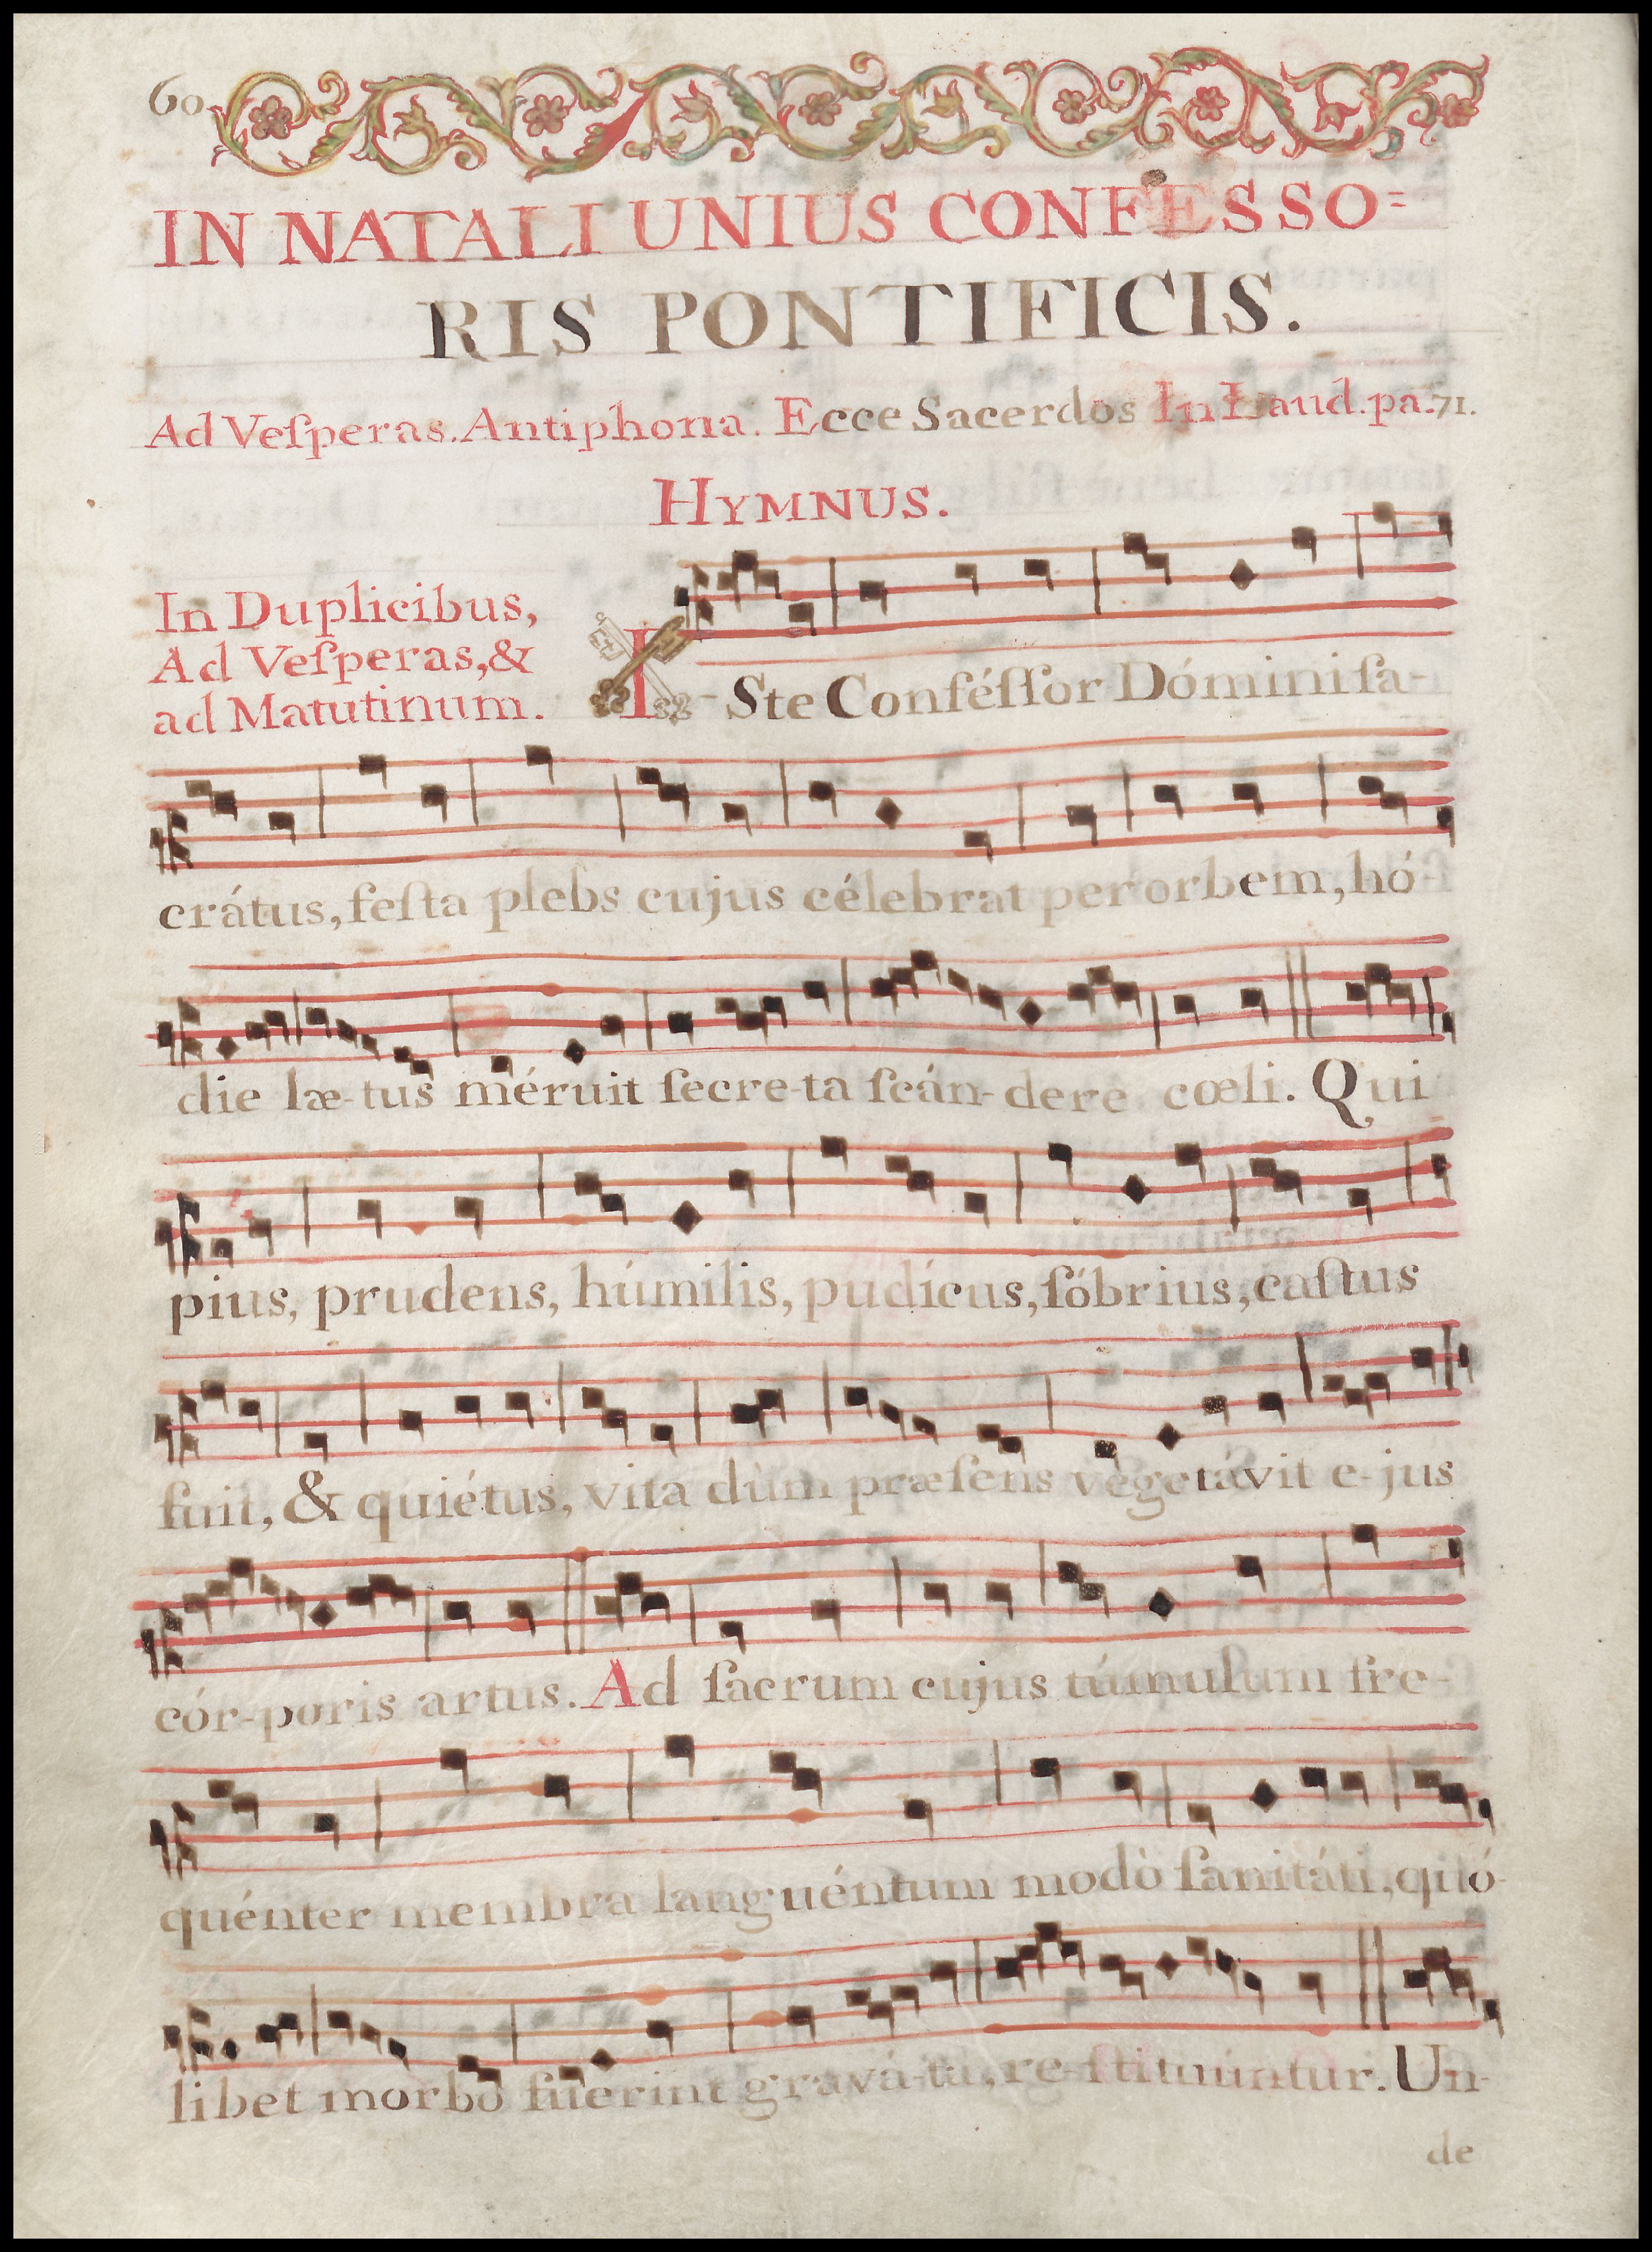 60
IN NATALI UNIUS CONFESSO=
RIS PONTIFICIS.
Ad Veſperas. Antiphona. Ecce Sacerdos In Laud. pa. 71.
HYMNUS.
In Duplicibus,
Ad Veſperas, &
ad Matutinum.
I-Ste Conféſſor Dómini ſa-
crátus, feſta plebs cujus célebrat per orbem, hó-
die læ-tus méruit ſecre-ta ſcán-dere cœli. Qui
pius, prudens, húmilis, pudícus, ſóbrius, caſtus
fuit, & quiétus, vita dùm præſens vegetávit e-jus
cór-poris artus. Ad ſacrum cujus túmulum fre-
quénter membra languéntum modò ſanitáti, quó-
libet morbo fúerint gravá-ta, re-ſtituúntur. Un-
de